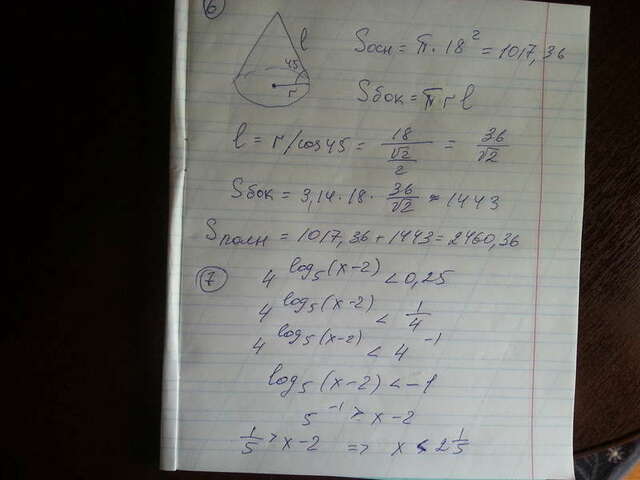 6
l
45
r
Sосн = π · 18² = 1017,36
Sбок = π r l
l = r/cos45 = 18/(√2/2) = 36/√2
Sбок = 3,14 · 18 · 36/√2 ≈ 1443
Sполн = 1017,36 + 1443 = 2460,36
7
4^log₅(x-2) < 0,25
4^log₅(x-2) < 1/4
4^log₅(x-2) < 4⁻¹
log₅(x-2) < -1
5⁻¹ > x-2
1/5 > x-2 => x < 2 1/5